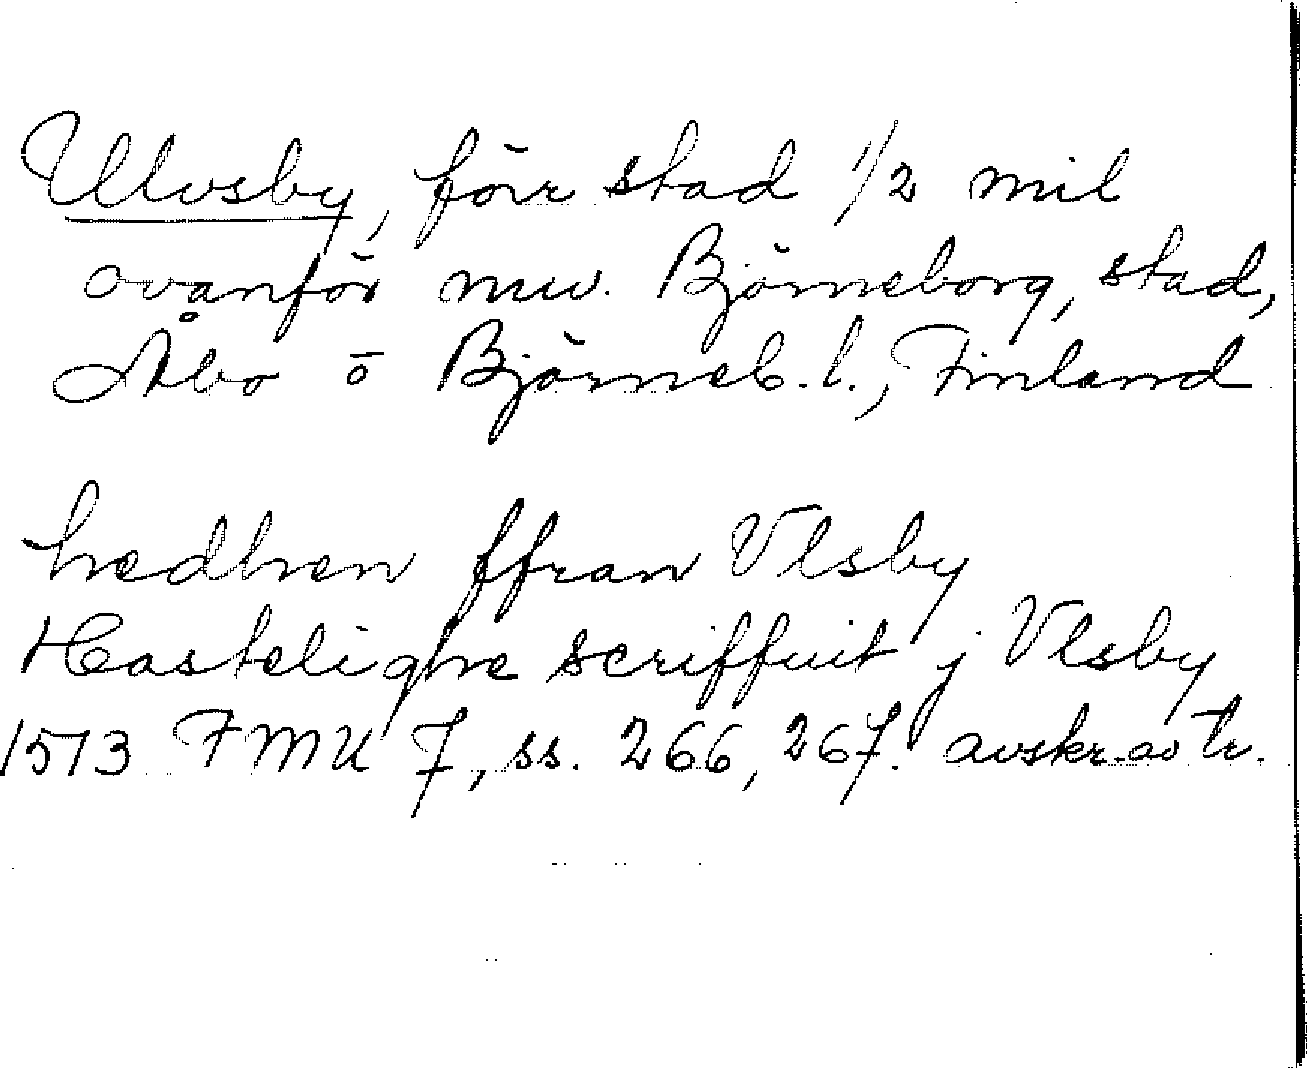 Ulvsby, förr stad 1/2 mil
ovanför nuv. Björneborg, stad,
Åbo o Björneb. l., Finland
hedhen ffran Vlsby
Hastelighe scriffuit j Vlsby
1513 FMU 7, ss. 266, 267. avskr. av tr.